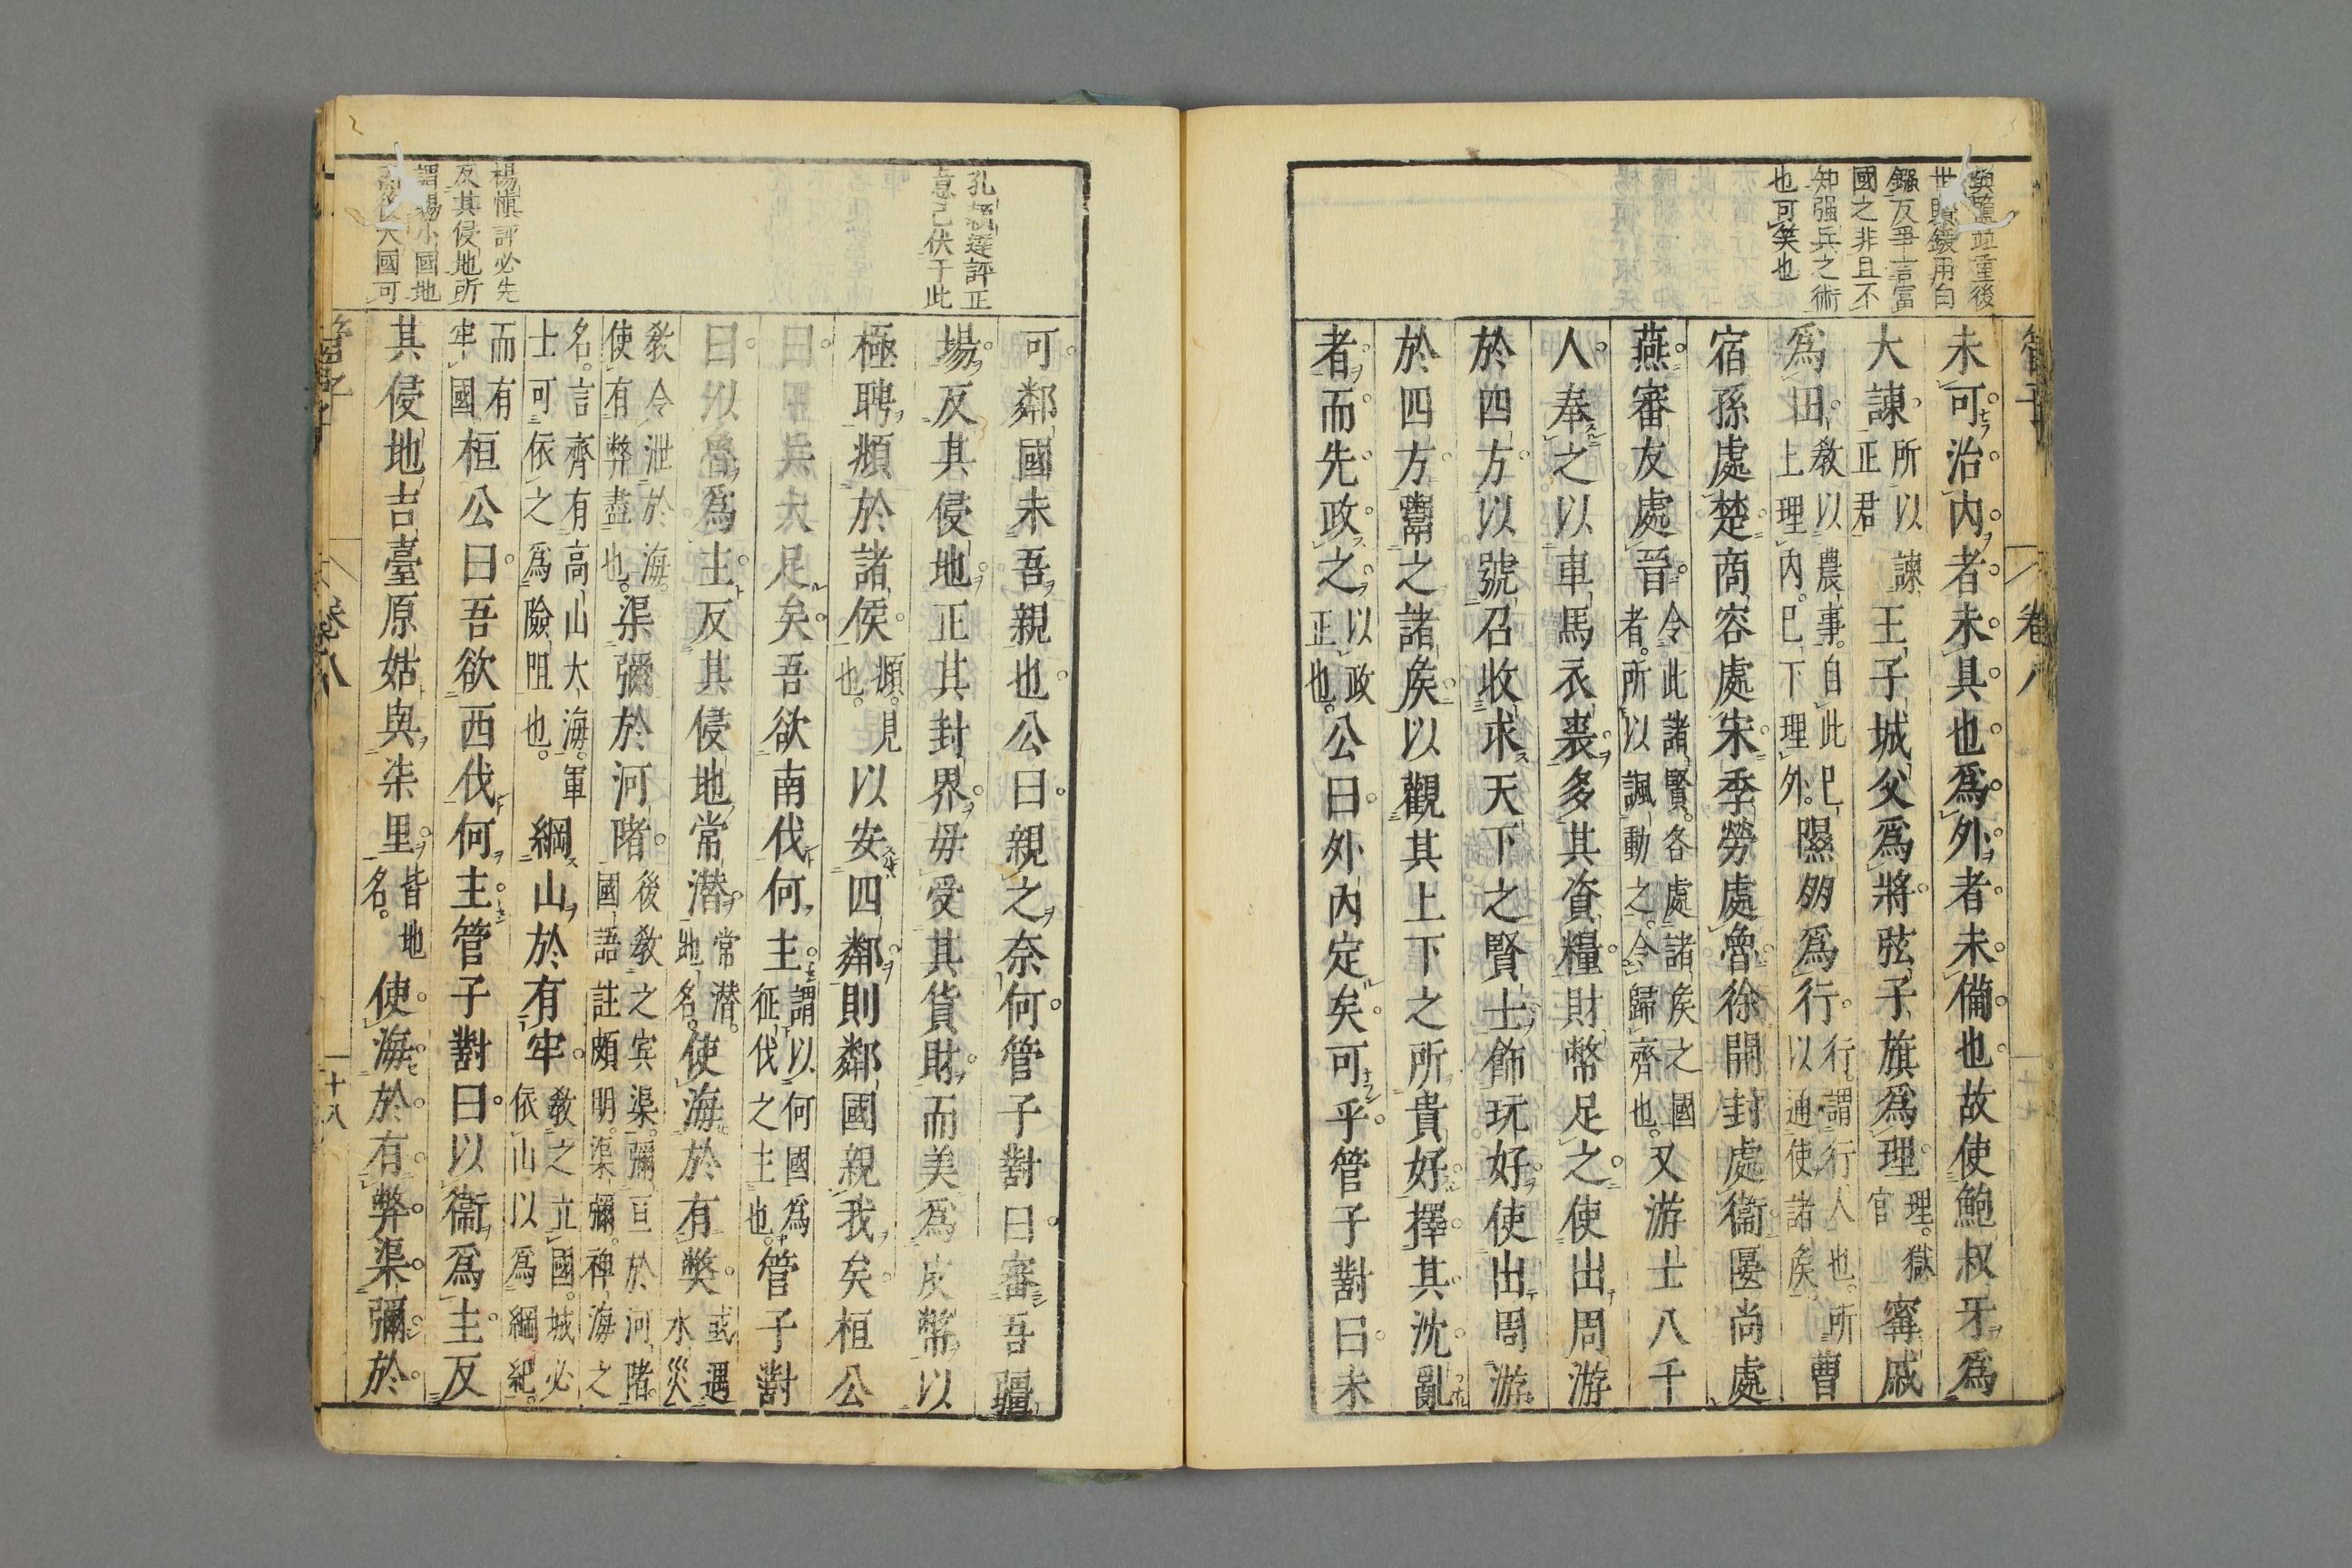 管子
卷八
與鹽並重後
世賤錢用白
鏹反爭言富
國之非且不
知强兵之術
也可笑也
未可治内者未具也爲外者未備也故使鮑叔牙爲
大諫所以諫正君王子城父爲將弦子旗爲理理獄官甯戚
爲田教以農事自此已上理内已下理外隰朋爲行行謂行人也所以通使諸侯曹
宿孫處楚商容處宋季勞處魯徐開封處衞匽尚處
燕審友處晉令此諸賢各處諸侯之國者所以諷動之令歸齊也又游士八千
人奉之以車馬衣裘多其資糧財幣足之使出周游
於四方以號召收求天下之賢士飾玩好使出周游
於四方鬻之諸侯以觀其上下之所貴好擇其沈亂
者而先政之以政正也公曰外内定矣可乎管子對曰未
孔穎達評正
意已伏于此
楊愼評必先
反其侵地所
謂揚小國地
大國可
可鄰國未吾親也公曰親之奈何管子對曰審吾疆
場反其侵地正其封界毋受其貨財而美爲皮幣以
極聘頫於諸侯頫見也以安四鄰則鄰國親我矣桓公
曰甲兵大足矣吾欲南伐何主謂以何國爲征伐之主也管子對
曰以魯爲主反其侵地常潛常潛地名使海於有獘或遇水災
教令泄於海使有弊盡也渠彌於河陼後教之宾渠彌亘於河陼國語註頗明渠彌裨海之
名言齊有高山大海軍士可依之爲險阻也綱山於有牢教之立國城必依山以爲綱紀
而有牢國桓公曰吾欲西伐何主管子對曰以衞爲主反
其侵地吉臺原姑與柒里皆地名使海於有弊渠彌於
管子
卷八
十八